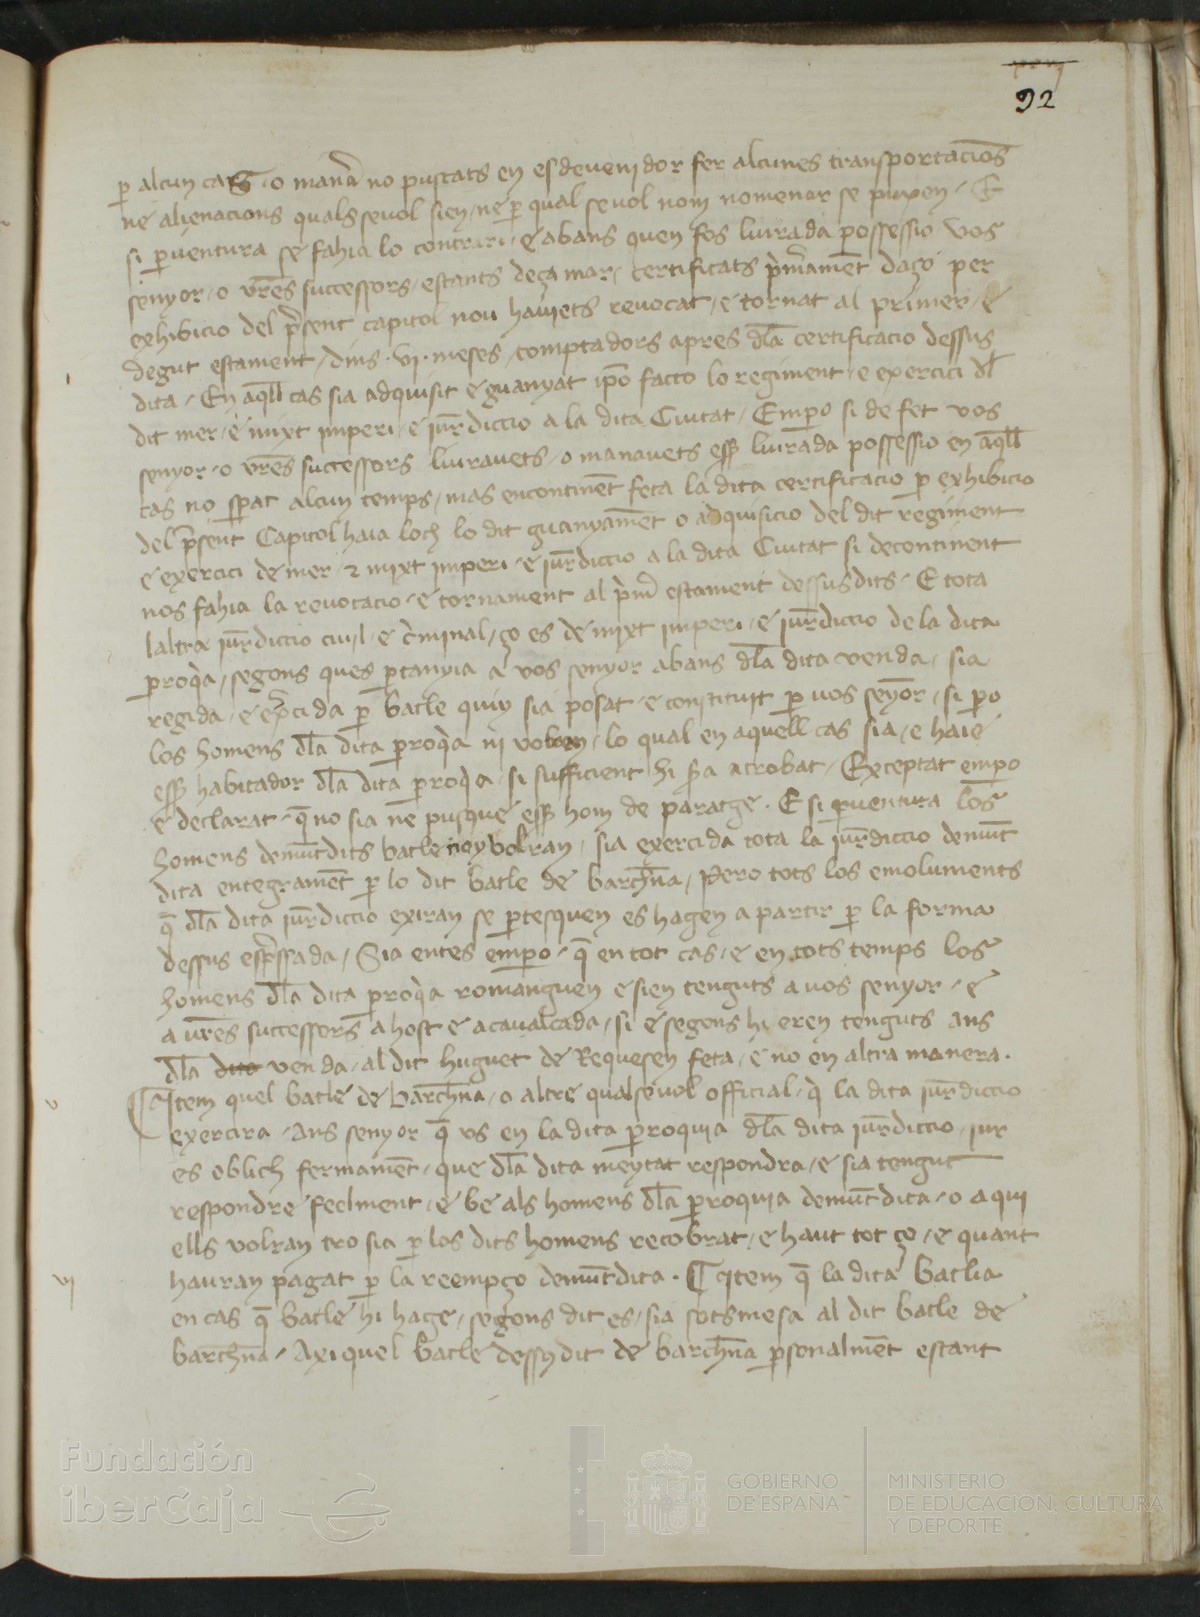 92
p alcun cas o mana no puscats en esdevenidor fer alcunes transportacions
ne alienacions qualssevol sien / ne p qual se vol nom nomenar se puxen / E
si pventura se fahia lo contrari / e abans quen fos liurada possessio vos
senyor / o vres successors / estants deça mar / certificats primament daço per
exhibicio del psent capitol nou haviets revocat / e tornat al primer / e
degut estament / dins . vi . meses / comptadors apres dla certificacio dessus
dita / En aqll cas sia adquisit e guanyat ipo facto lo regiment / e exercici dl
dit mer / e mixt imperi / e jurdiccio a la dita Ciutat / Empo si de fet vos
senyor / o vres successors liuravets / o manavets ess liurada possessio en aqll
cas no spat alcun temps / mas encontinent feta la dita certificacio p exhibicio
del psent Capitol haia loch lo dit guanyament o adquisicio del dit regiment
e exercici de mer / & mixt imperi / e jurdiccio a la dita Ciutat si decontinent
nos fahia la revocacio / e tornament al pm estament dessusdits / E tota
laltra jurdiccio civil / e criminal / ço es de mixt imperi / e jurdiccio de la dita
proqa / segons ques ptanyia a vos senyor abans dla dita venda / sia
regida / e expcida p batle quiy sia posat / e constituit p vos senyor / si po
los homens dla dita proqa ni volen / lo qual en aquell cas sia / e haie
ess habitador dla dita proqa / si sufficient hi sa atrobat / Exceptat empo
e declarat / q no sia ne pusque ess hom de paratge . E si pventura los
homens demuntdits batle noy volran / sia exercida tota la jurdiccio demunt
dita entegrament p lo dit batle de barchna / Pero tots los emoluments
q dla dita jurdiccio exiran se ptesquen es hagen a partir p la forma
dessus expressada / Sia entes empo / q en tot cas / e en tots temps los
homens dla dita proqa romanguen e sien tenguts a vos senyor / e
a vres successors a host e a cavalcada / si e segons hi eren tenguts ans
dla dita venda / al dit huguet de Requesen feta / e no en altra manera .
v
Item quel batle de barchna / o altre qualsevol official / q la dita jurdiccio
exercira / Ans senyor q us en la dita proquia dla dita jurdiccio / jur
es oblich fermament / que dla dita meytat respondra / e sia tengut
respondre feelment / e be als homens dla proquia demuntdita / o a qui
ells volran tro sia p los dits homens recobrat / e haut tot ço / e quant
vi
hauran pagat p la reempço demuntdita . Item q la dita batlia
en cas q batle hi hage / segons dit es / sia sotsmesa al dit batle de
barchna / Axi quel batle dessusdit de barchna psonalment estant
Fundación
iberCaja
GOBIERNO
DE ESPAÑA
MINISTERIO
DE EDUCACIÓN, CULTURA
Y DEPORTE